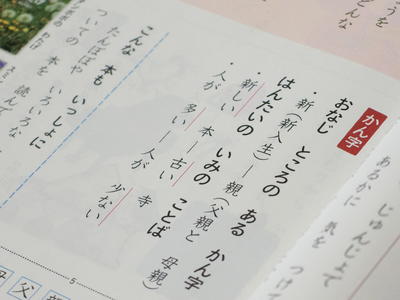 うを
どんな
じゅんじょで
あるかに 気を つけ
かん字
おなじ ところの ある かん字
・新(新入生)―親(父親と 母親)
はんたいの いみの ことば
・新しい 本―古い 寺
・人が 多い―人が 少ない
こんな 本も いっしょに
たんぽぽや
ついての 本を いろいろな
読んで
5
父